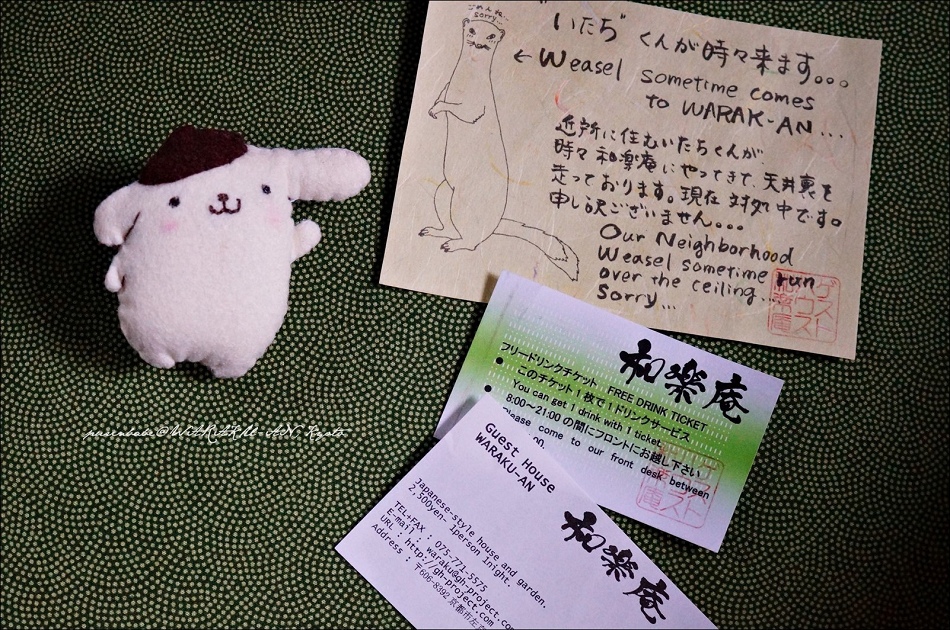 ごめんね…
sorry...
"いたち"くんが時々来ます。。。
←Weasel sometime comes
to WARAK-AN...
近所に住むいたちくんが、
時々和楽庵にやってきて、天井裏を
走っております。現在対処中です。
申し訳ございません。。。
Our Neighborhood
Weasel sometime run
over the ceiling...
Sorry...
ゲストハウス
和楽庵
和楽庵
フリードリンクチケット FREE DRINK TICKET
● このチケット1枚で1ドリンクサービス
You can get 1 drink with 1 ticket.
● 8:00〜21:00の間にフロントにお越し下さい
Please come to our front desk between
Guest House
WARAKU-AN
和楽庵
Japanese-style house and garden.
2,500yen- 1person 1night.
TEL+FAX : 075-771-5575
E-mail : waraku@gh-project.com
URL : http://gh-project.com
Address : 〒606-8392 京都市左京